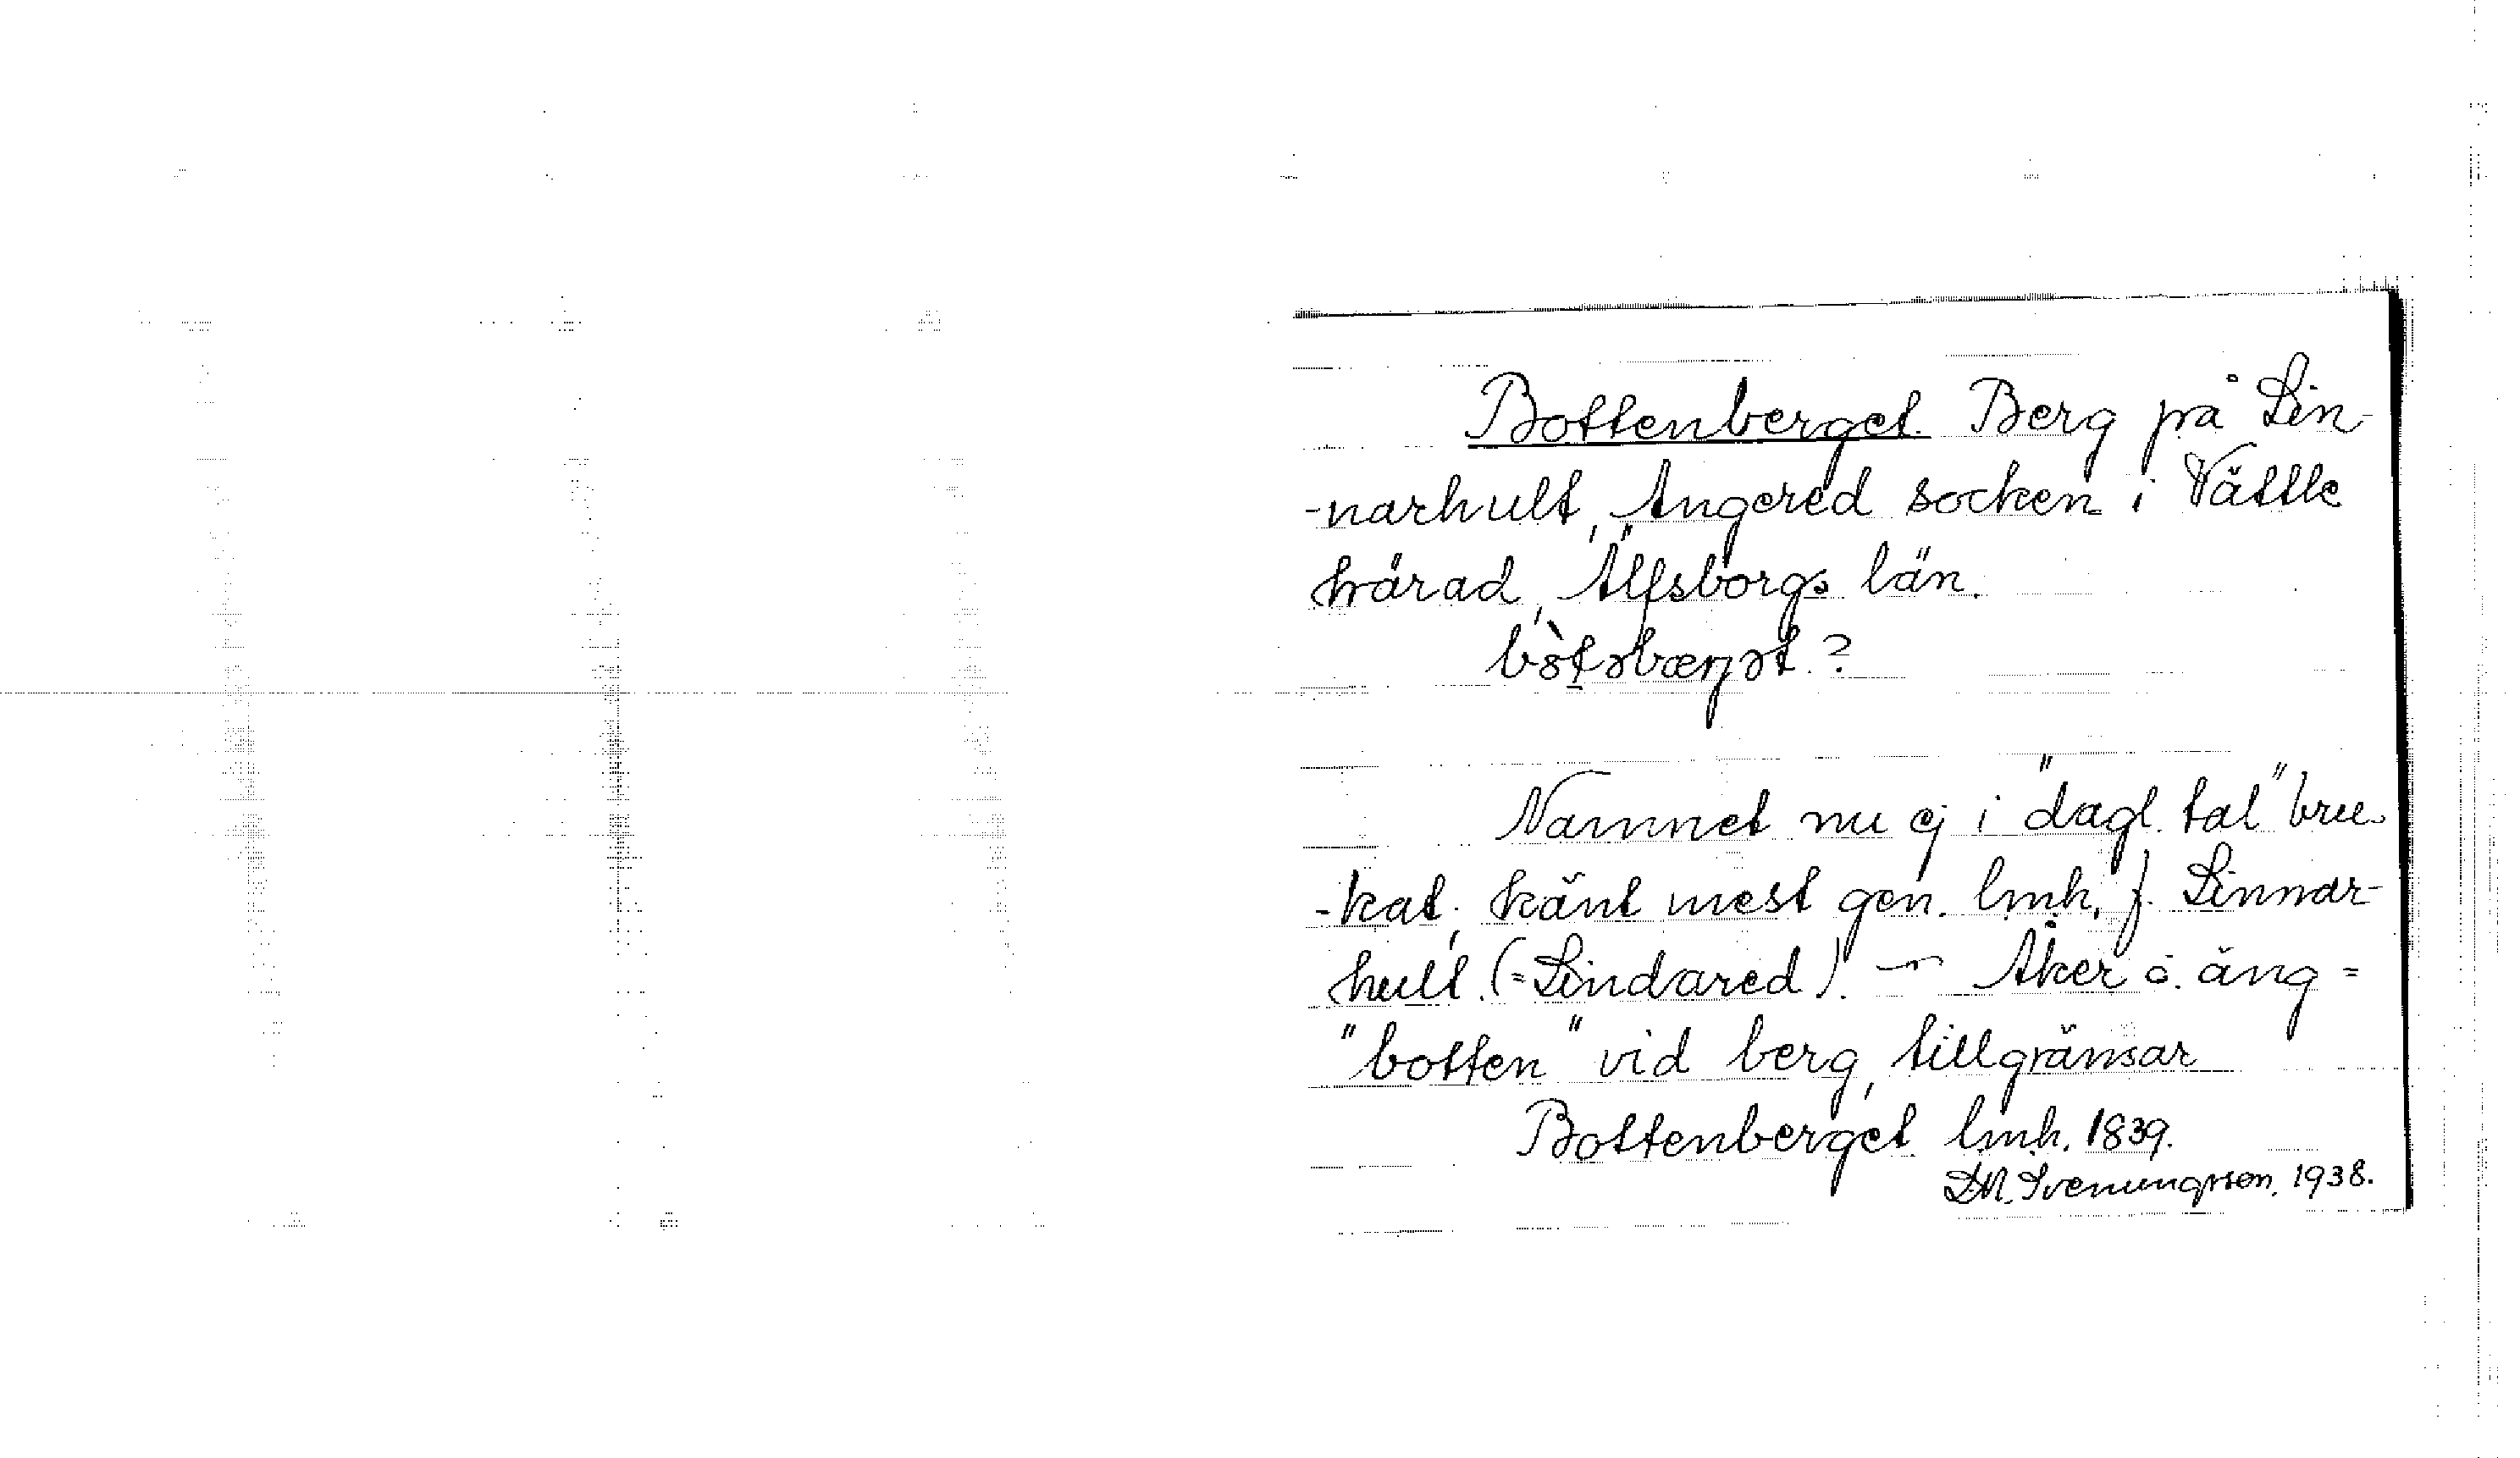 Bottenberget. Berg på Lin-
-narhult, Angered socken i Vättle
härad, Älfsborgs län.
Namnet nu ej i "dagl. tal" bru-
-kat, känt mest gen. lmh. f. Linnar-
hult (=Lindared). — Åker o. äng =
"botten" vid berg, tillgränsar
Bottenberget lmh. 1839.
Svenungsson, 1938.